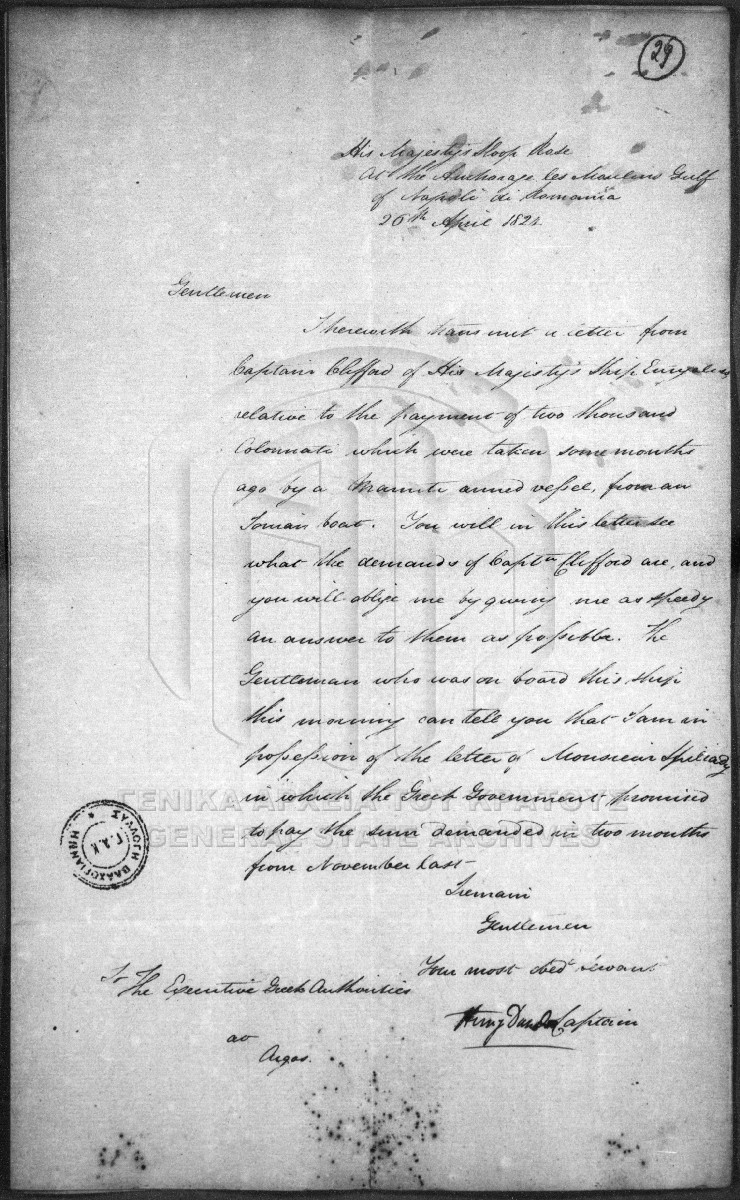 29
His Majesty's Sloop Rose
At the Anchorage les Moulins Gulf
of Napoli di Romania
26th April 1824
Gentlemen
I herewith transmit a letter from
Captain Clifford of His Majesty's Ship Euryalus
relative to the payment of two thousand
Colonnati which were taken some months
ago by a armed vessel, from an
Ionian boat. You will in this letter see
what the demands of Captn Clifford are, and
you will oblige me by giving me as speedy
an answer to them as possible. The
Gentleman who was on board this ship
this morning can tell you that I am in
possession of the letter of Monsieur
in which the Greek Government promised
to pay the sum demanded in two months
from November last—
I remain
Gentlemen
Your most obedt servant
Henry Dundas Captain
To The Executive Greek Authorities
at
Argos.
ΓΕΝΙΚΑ ΑΡΧΕΙΑ ΤΟΥ ΚΡΑΤΟΥΣ
GENERAL STATE ARCHIVES
ΣΥΛΛΟΓΗ ΒΛΑΧΟΓΙΑΝΝΗ
Γ.Α.Κ